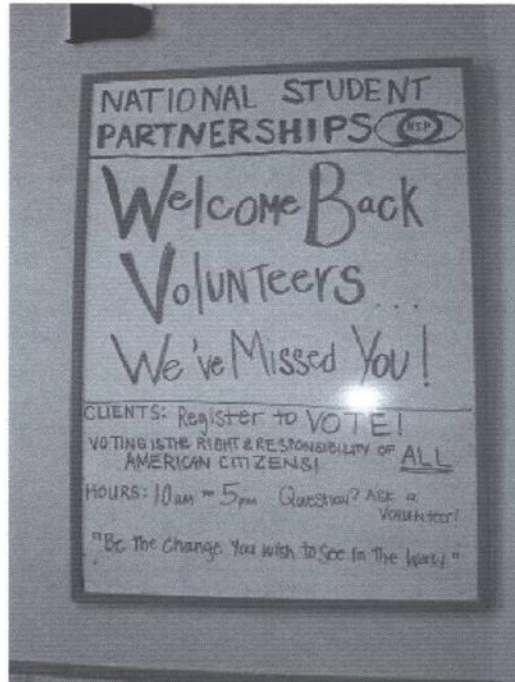 NATIONAL STUDENT
PARTNERSHIPS NSP
Welcome Back
Volunteers...
We've Missed You!
CLIENTS: Register to VOTE!
VOTING IS THE RIGHT & RESPONSIBILITY OF ALL
AMERICAN CITIZENS!
HOURS: 10am to 5pm Question? Ask a
Volunteer!
"Be the change you wish to see in the World"